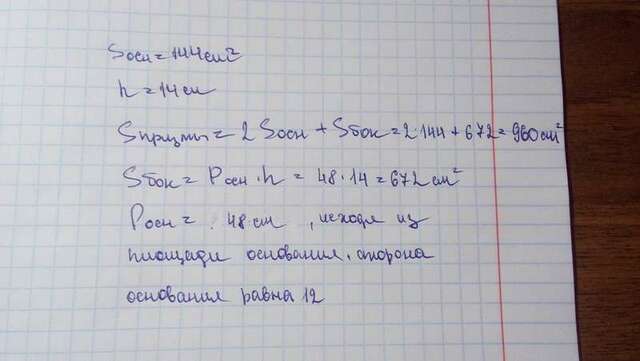 Sосн = 144 см²
h = 14 см
Sпризмы = 2 Sосн + Sбок = 2·144 + 672 = 960 см²
Sбок = Pосн · h = 48 · 14 = 672 см²
Pосн = 48 см, исходя из
площади основания, сторона
основания равна 12